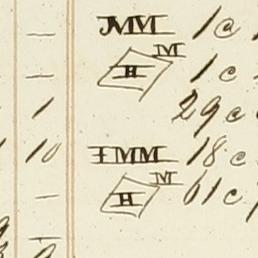 — JMM 1 c
— H M 1 c
1 29 c
10 IMM 18 c
— H M 61 c
—